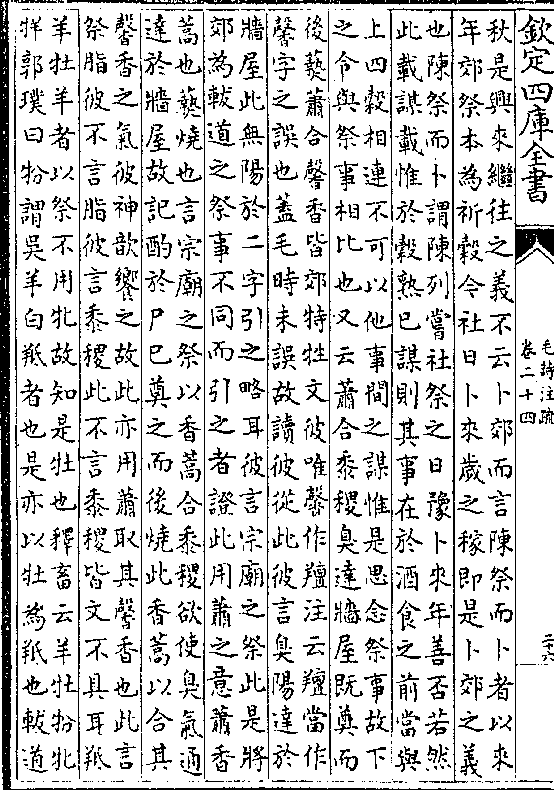 欽定四庫全書
毛詩注疏
卷二十四
二十六
秋是興來繼往之義不云卜郊而言陳祭而卜者以來
年郊祭本為祈穀今社日卜來歲之稼即是卜郊之義
也陳祭而卜謂陳列嘗社祭之日豫卜來年善否若然
此載謀載惟於穀熟已謀則其事在於酒食之前當與
上四穀相連不可以他事間之謀惟是思念祭事故下
之令與祭事相比也又云蕭合黍稷臭達牆屋既奠而
後爇蕭合馨香皆郊特牲文彼唯馨作羶注云羶當作
馨字之誤也蓋毛時未誤故讀彼從此彼言臭陽達於
牆屋此無陽於二字引之略耳彼言宗廟之祭此是將
郊為軷道之祭事不同而引之者證此用蕭之意蕭香
蒿也爇燒也言宗廟之祭以香蒿合黍稷欲使臭氣通
達於牆屋故記酌於尸已奠之而後燒此香蒿以合其
馨香之氣彼神歆饗之故此亦用蕭取其馨香也此言
祭脂彼不言脂彼言黍稷此不言黍稷皆文不具耳羝
羊牡羊者以祭不用牝故知是牡也釋畜云羊牡羒牝
牂郭璞曰羒謂吳羊白羝者也是亦以牡為羝也軷道